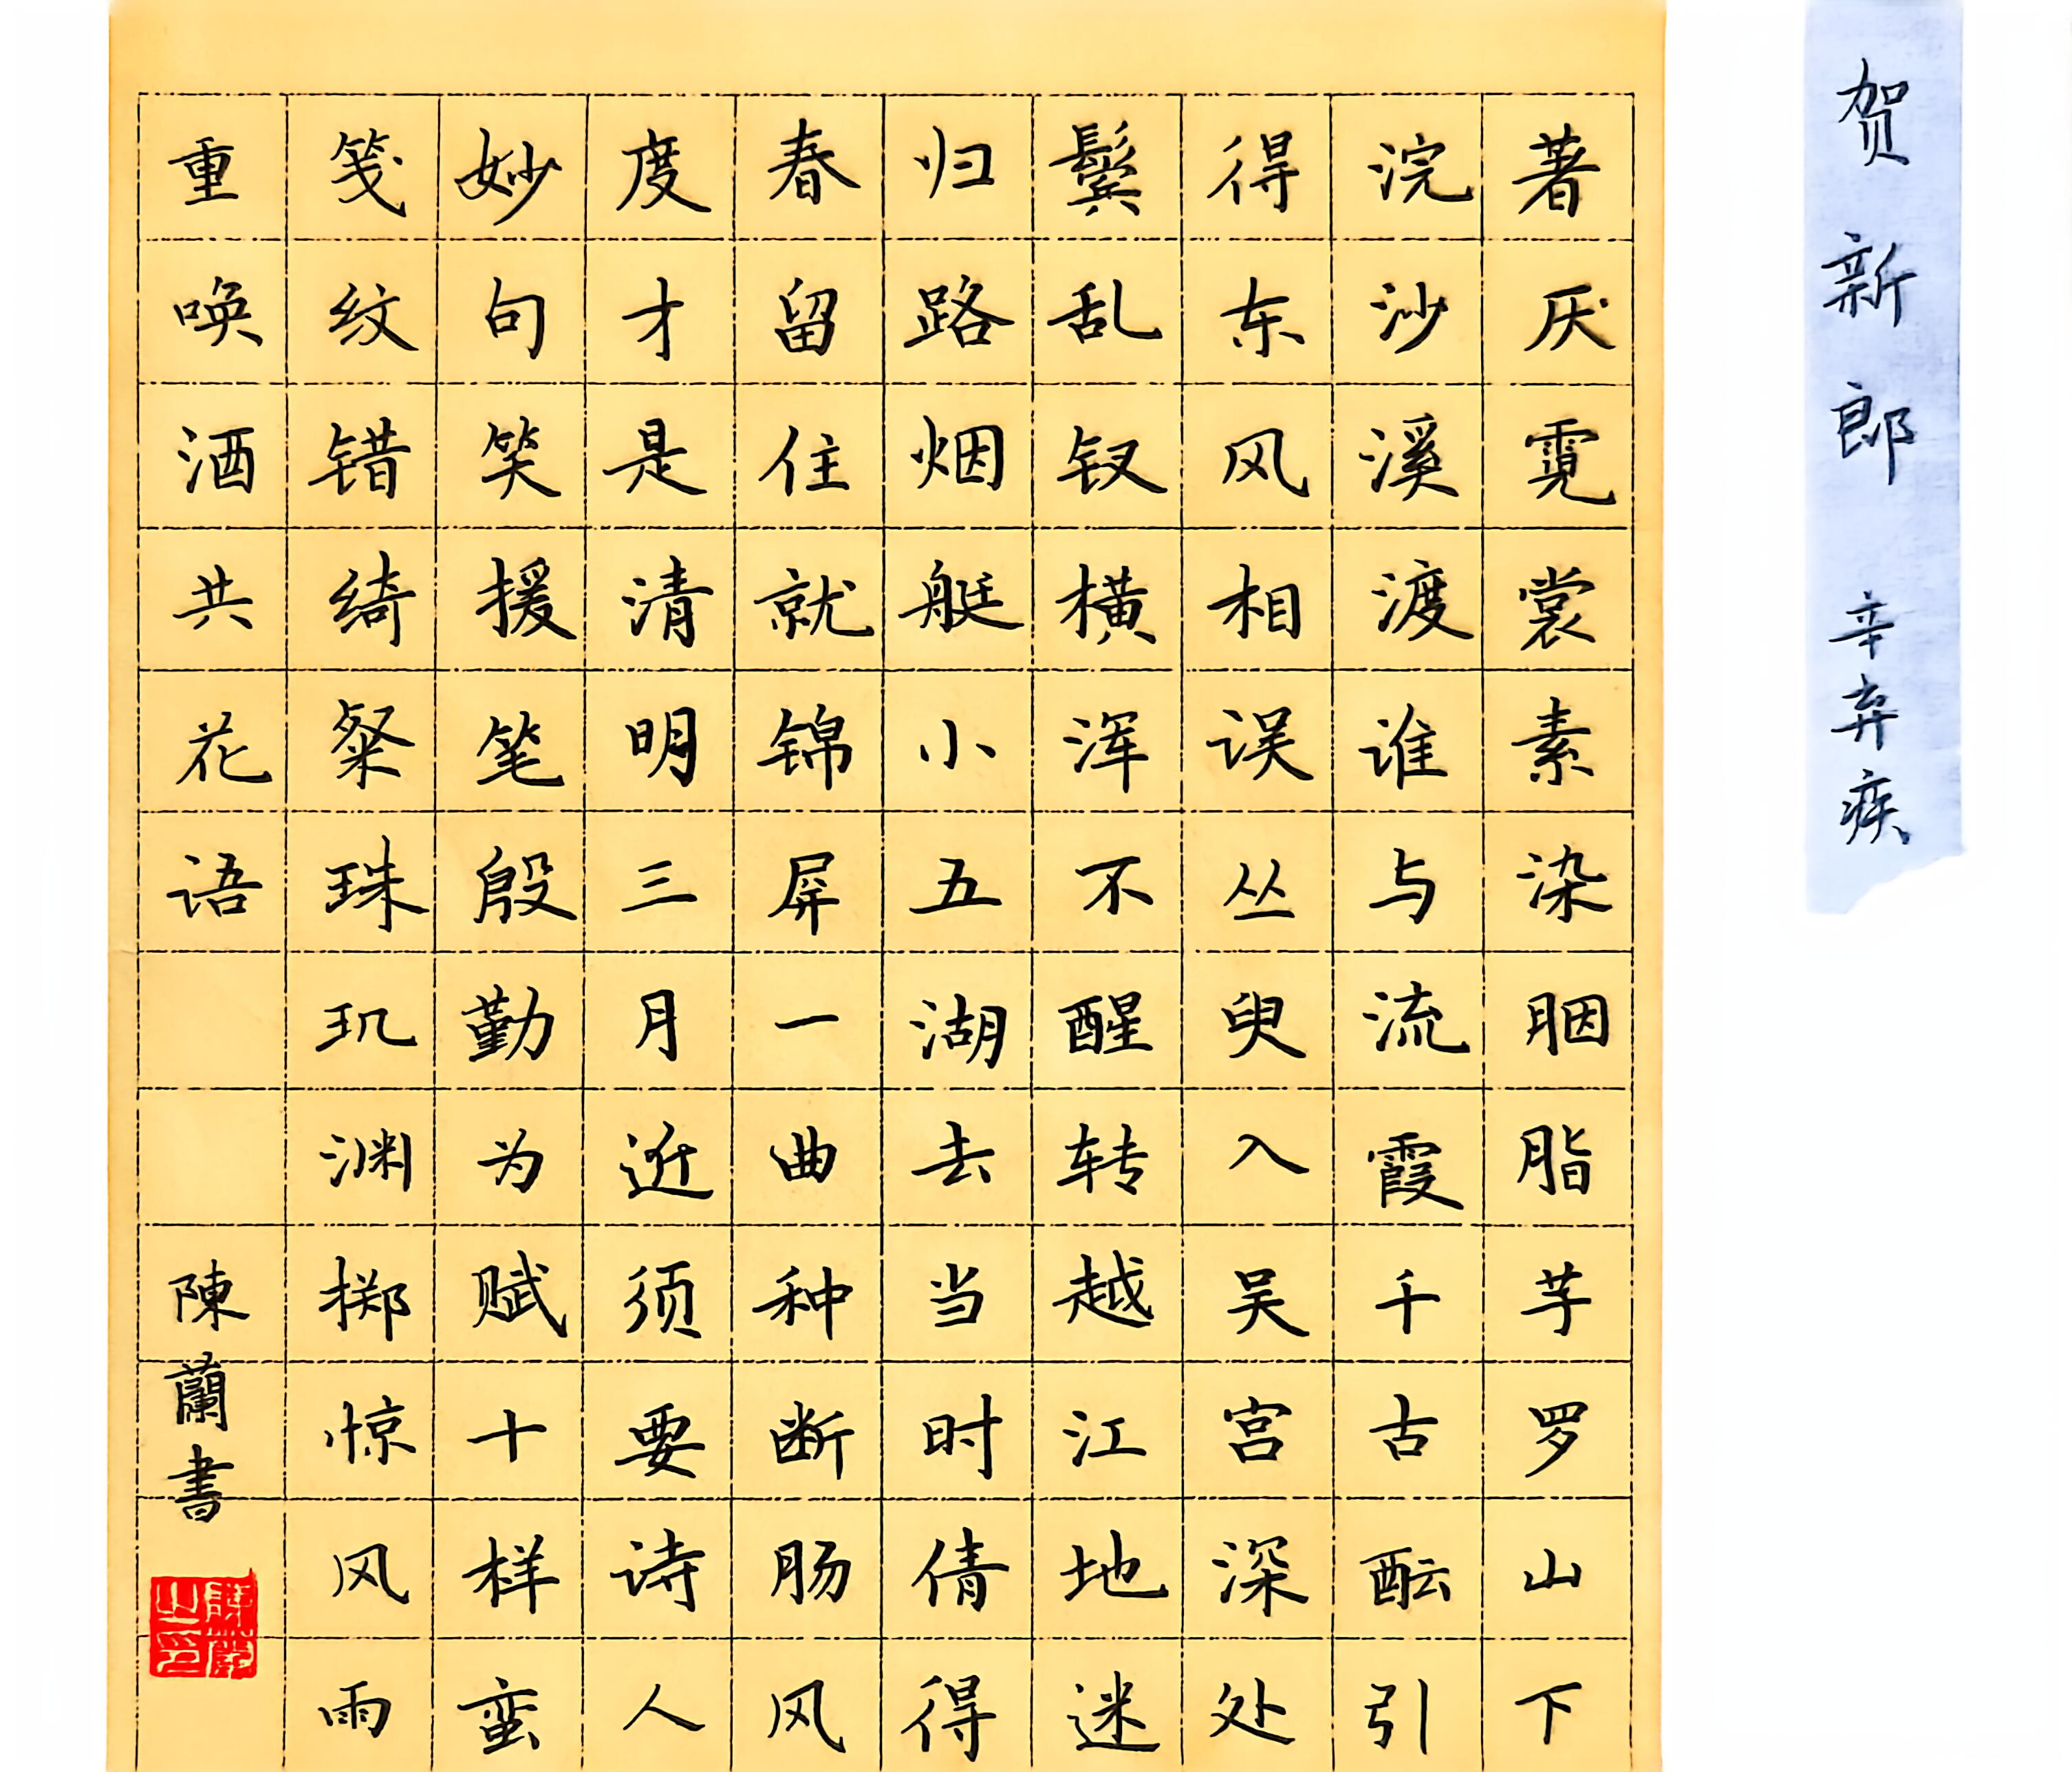 贺新郎 辛弃疾
著厌霓裳素染胭脂芧罗山下
浣沙溪渡谁与流霞千古酝引
得东风相误丛臾入吴宫深处
鬓乱钗横浑不醒转越江地迷
归路烟艇小五湖去当时倩得
春留住就锦屏一曲种断肠风
度才是清明三月近须要诗人
妙句笑援笔殷勤为赋十样蛮
笺纹错绮粲珠玑渊掷惊风雨
重唤酒共花语
陳蘭書